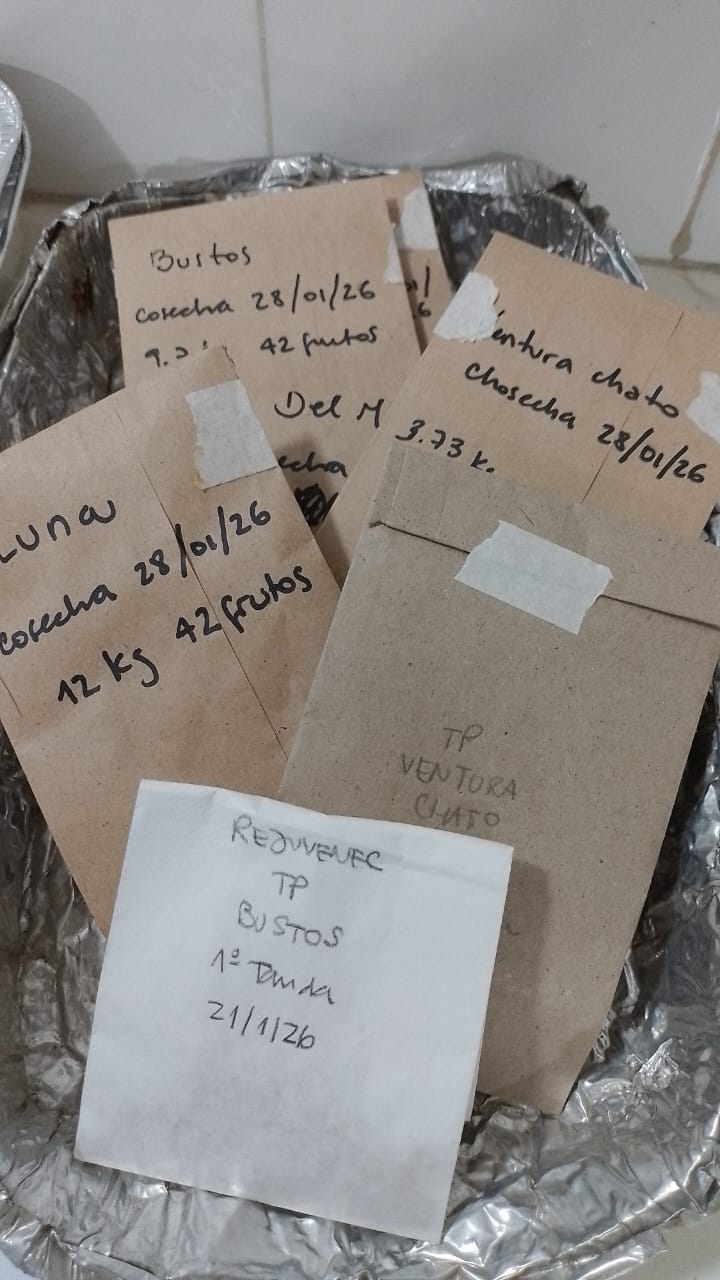 Bustos
cosecha 28/01/26
42 frutos
Del M
echa
entura chato
chosecha 28/01/26
3.73 k.
Luna
cosecha 28/01/26
12 kg 42 frutos
TP
VENTURA
CHATO
REJUVENEC
TP
BUSTOS
1º Tanda
21/1/26